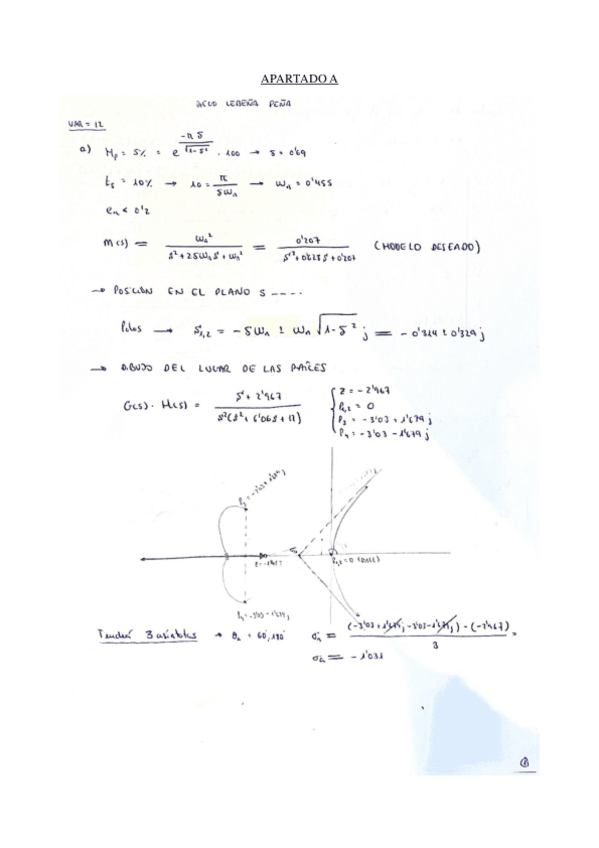 APARTADO A
LEBEÑA PEÑA
VAR = 12
a) Mp = 5% = e^(-π δ / √1-δ²) · 100 → δ = 0'69
ts = 10% → 10 = π / δωn → ωn = 0'455
en < 0'2
M(s) = ωn² / s² + 2δωn s + ωn² = 0'207 / s² + 0'628 s + 0'207 (MODELO DESEADO)
→ POSICIÓN EN EL PLANO S ----
Polos → s1,2 = -δωn ± ωn √1-δ² j = -0'314 ± 0'329 j
→ DIBUJO DEL LUGAR DE LAS RAÍCES
G(s) · H(s) = s + 2'967 / s²(s² + 6'06s + 12)
Z = -2'967
P1,2 = 0
P3 = -3'03 + 1'679 j
P4 = -3'03 - 1'679 j
P1,2 = 0 (DOBLE)
P4 = -3'03 - 1'679 j
Tendrá 3 asíntotas → θa = 60°, 180° σa = (-3'03 + 1'679 j - 3'03 - 1'679 j) - (-2'967) / 3 =
σa = -1'031